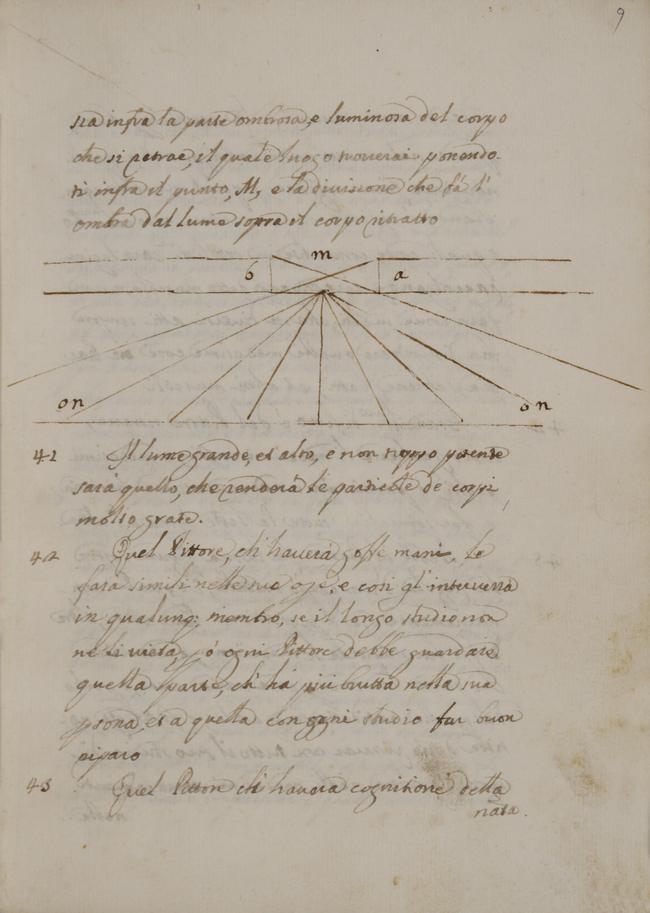 9
sia infra la parte ombrosa, e luminosa del corpo
che si retrae, il quale luogo troverai ponendo-
ti infra il punto, M, e la divisione che fà l'
ombra dal lume sopra il corpo ritratto
m
b a
on on
41 Il lume grande, et alto, e non troppo potente
sarà quello, che renderà le particole de corpi
molto grate.
42 Quel Pittore, ch' haverà goffe mani, le
farà simili nelle sue op̃e, e così gl' interverrà
in qualunq; membro, se il longo studio non
ne li vieta, ò ogni Pittore debbe guardare
quella parte, ch' hà più brutta nella sua
psona, et a quella con ogni studio far buon
riparo
43 Quel Pittore ch' haverà cognitione della
nata.